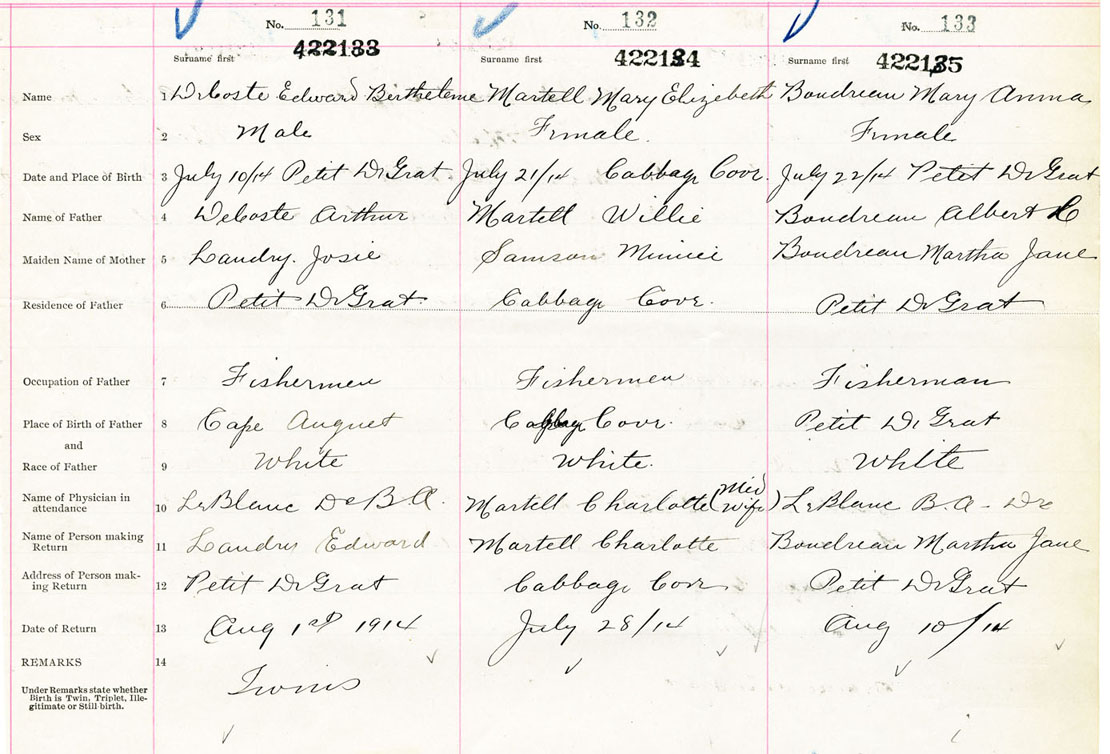 No. 131 No. 132 No. 133
422133 422134 422135
Surname first Surname first Surname first
Name 1 DeCoste Edward Bertheleme Martell Mary Elizebeth Boudreau Mary Anma
Sex 2 Male Female. Female
Date and Place of Birth 3 July 10/14 Petit De Grat. July 21/14 Cabbage Cove. July 22/14 Petit De Grat
Name of Father 4 DeCoste Arthur Martell Willie Boudreau Albert C
Maiden Name of Mother 5 Landry. Josie Samson Minnie Boudreau Martha Jane
Residence of Father 6 Petit De Grat. Cabbage Cove. Petit De Grat
Occupation of Father 7 Fishermen Fishermen Fisherman
Place of Birth of Father 8 Cape Auguet Cabbage Cove. Petit De Grat
and
Race of Father 9 White White. White
Name of Physician in
attendance 10 LeBlanc Dr B.A. Martell Charlotte (Mid wife) LeBlanc B.A - Dr
Name of Person making
Return 11 Landry Edward Martell Charlotte Boudreau Martha Jane
Address of Person mak-
ing Return 12 Petit De Grat Cabbage Cove Petit De Grat
Date of Return 13 Aug 1st 1914 July 28/14 Aug 10/14
REMARKS 14
Under Remarks state whether
Birth is Twin, Triplet, Ille-
gitimate or Still-birth.
Twins